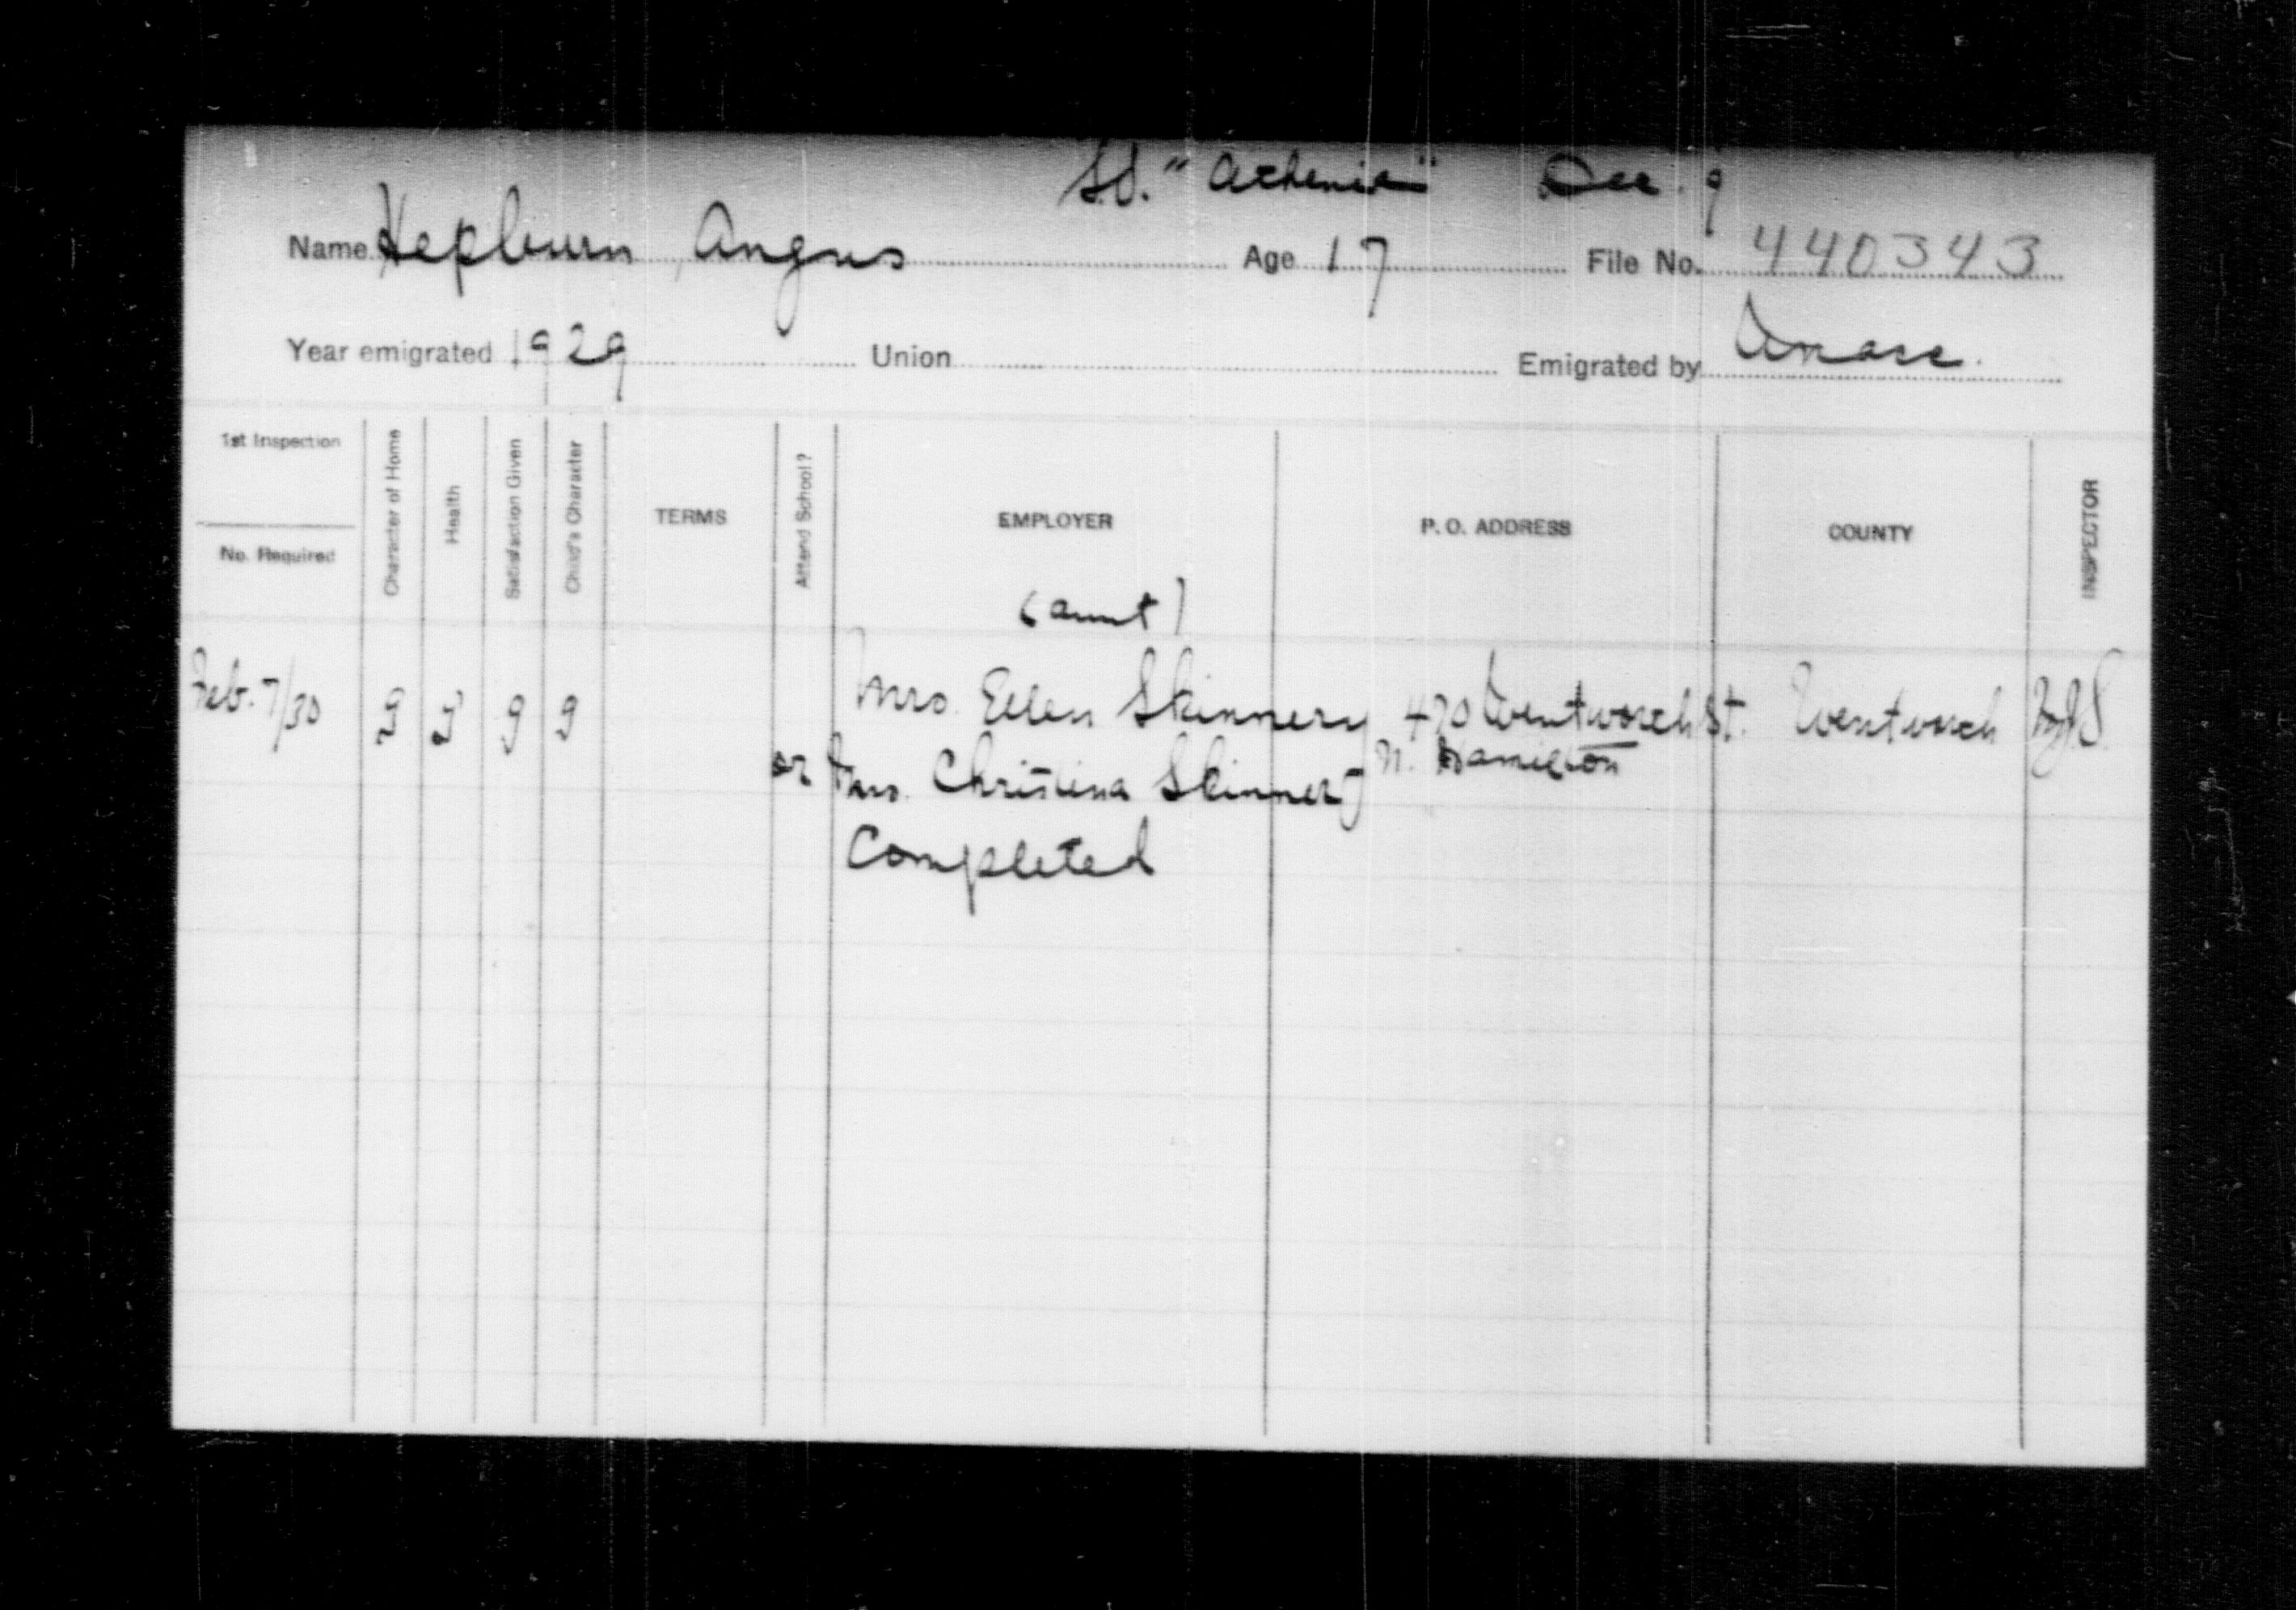 S.S. "Athenia" Dec. 9
Name Hepburn, Angus Age 17 File No. 440343
Year emigrated 1929 Union Emigrated by
1st Inspection
No. Required
Character of Home
Health
Satisfaction Given
Child's Character
TERMS
Attend School?
EMPLOYER
P. O. ADDRESS
COUNTY
INSPECTOR
(aunt)
Feb. 7/30 g g g g Mrs. Ellen Skinner 470 Wentworth St. Wentworth
or Mrs. Christina Skinner N. Hamilton
Completed